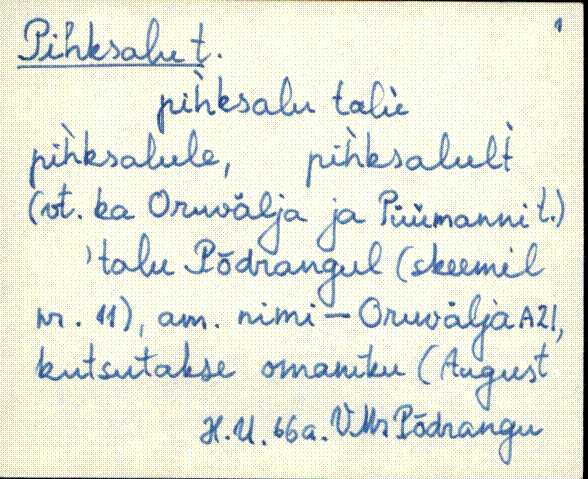 1
Pihksalu t.
pìhksalu talu
pìhksalule, pìhksalult
(vt. ka Oruvälja ja Püümanni t.)
'talu Põdrangul (skeemil
nr. 11), am. nimi – Oruvälja A21,
kutsutakse omaniku (August
H.U. 66a. VMr Põdrangu